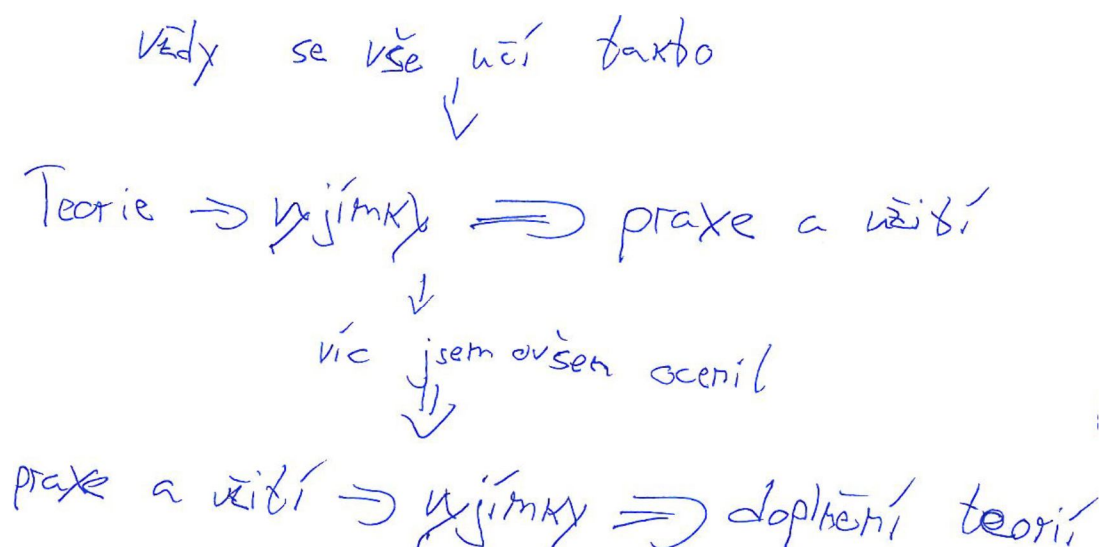 vždy se vše učí takto
↓
Teorie ⇒ vyjímky ⇒ praxe a užití
↓
víc jsem ovšem ocenil
⇓
praxe a užití ⇒ vyjímky ⇒ doplnění teorií